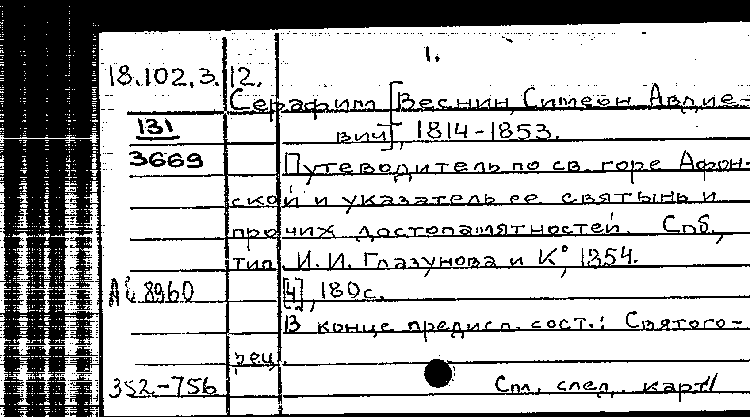 1.
18.102.3.12.
Серафим [Веснин, Симеон Авдие-
131
вич], 1814-1853.
3669
Путеводитель по св. горе Афон-
ской и указатель ее святынь и
прочих достопамятностей. Спб.,
тип. И.И. Глазунова и К°, 1854.
[4], 180 с.
В конце предисл. сост.: Святого-
рец.
352-756
См. след. карт.